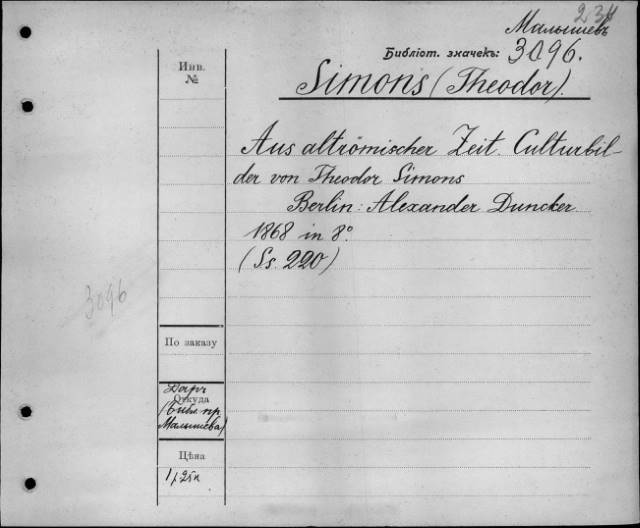 234
Малышевъ
Библіот. значекъ: 3096.
Simons (Theodor).
Инв.
№
Aus altrömischer Zeit. Culturbil-
der von Theodor Simons
Berlin: Alexander Duncker
1868 in 8°.
(Ss. 220)
3096
По заказу
Откуда
Даръ
(Библ. пр.
Малышева)
Цѣна